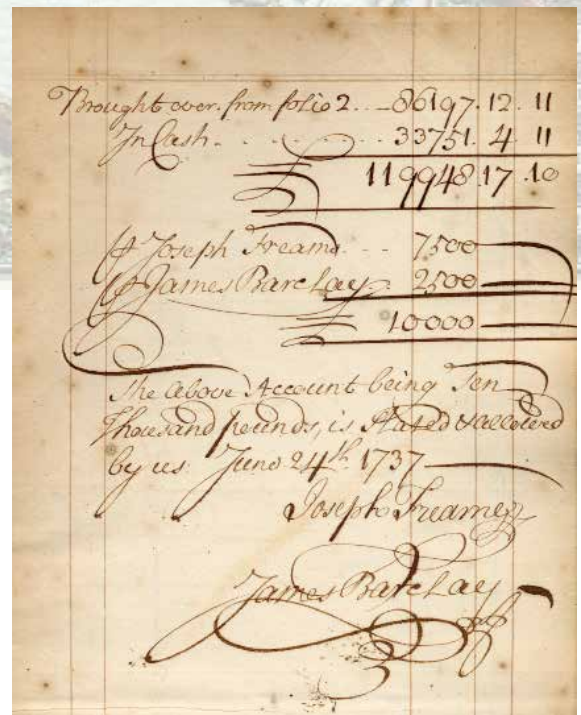 Brought over from folio 2 - - - 86197. 12. 11
In Cash - - - - - - 33751. 4 11
119948. 17. 10
Joseph Freame - - - 7500
James Barclay 2500
10000
The Above Account being Ten
Thousand pounds, is Stated & allowed
by us June 24th. 1737
Joseph Freame
James Barclay